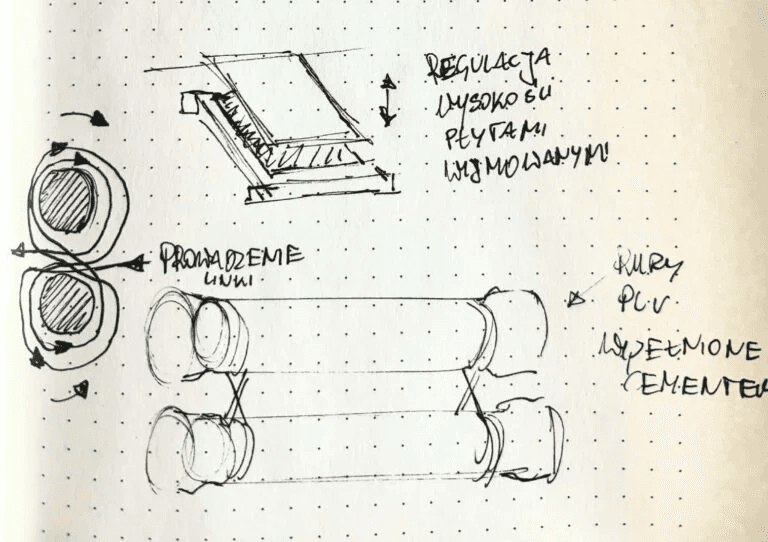 REGULACJA
WYSOKOŚCI
PŁYTAMI
WYJMOWANYMI
PROWADZENIE
LINKI
RURY
PCV
WYPEŁNIONE
CEMENTEM